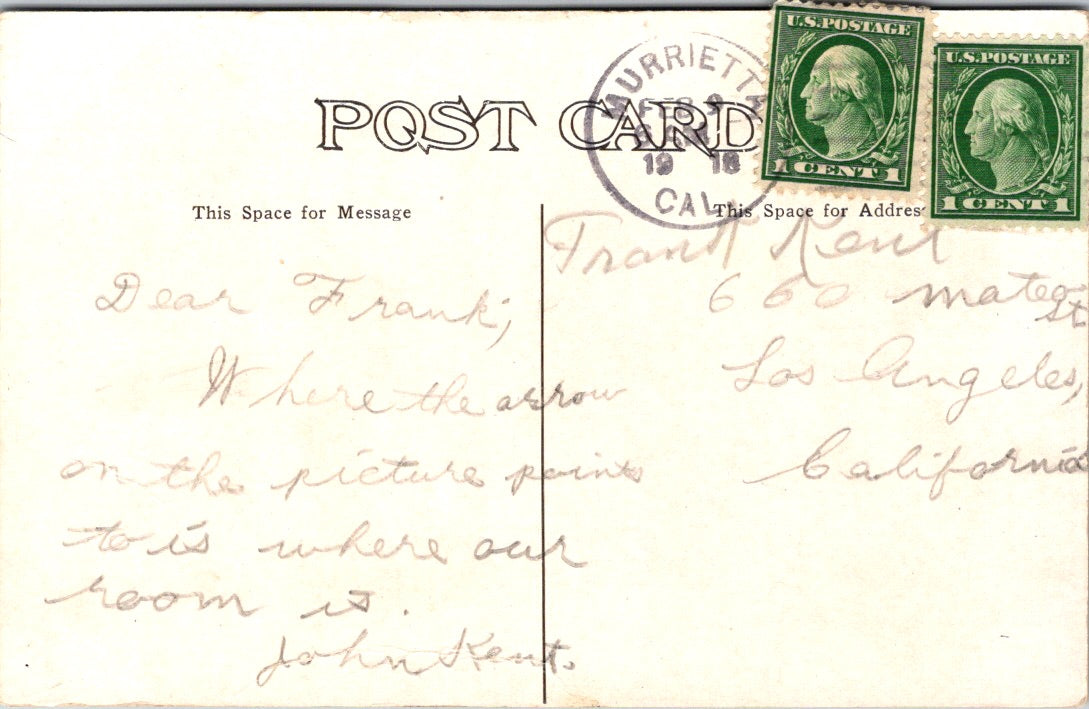 POST CARD
MURRIETTA
FEB 9
19 18
CAL.
U.S. POSTAGE
1 CENT 1
U.S. POSTAGE
1 CENT 1
This Space for Message
Dear Frank,
Where the arrow
on the picture points
to is where our
room is.
John Kent.
This Space for Address
Frank Kent
660 Mateo
St
Los Angeles,
California